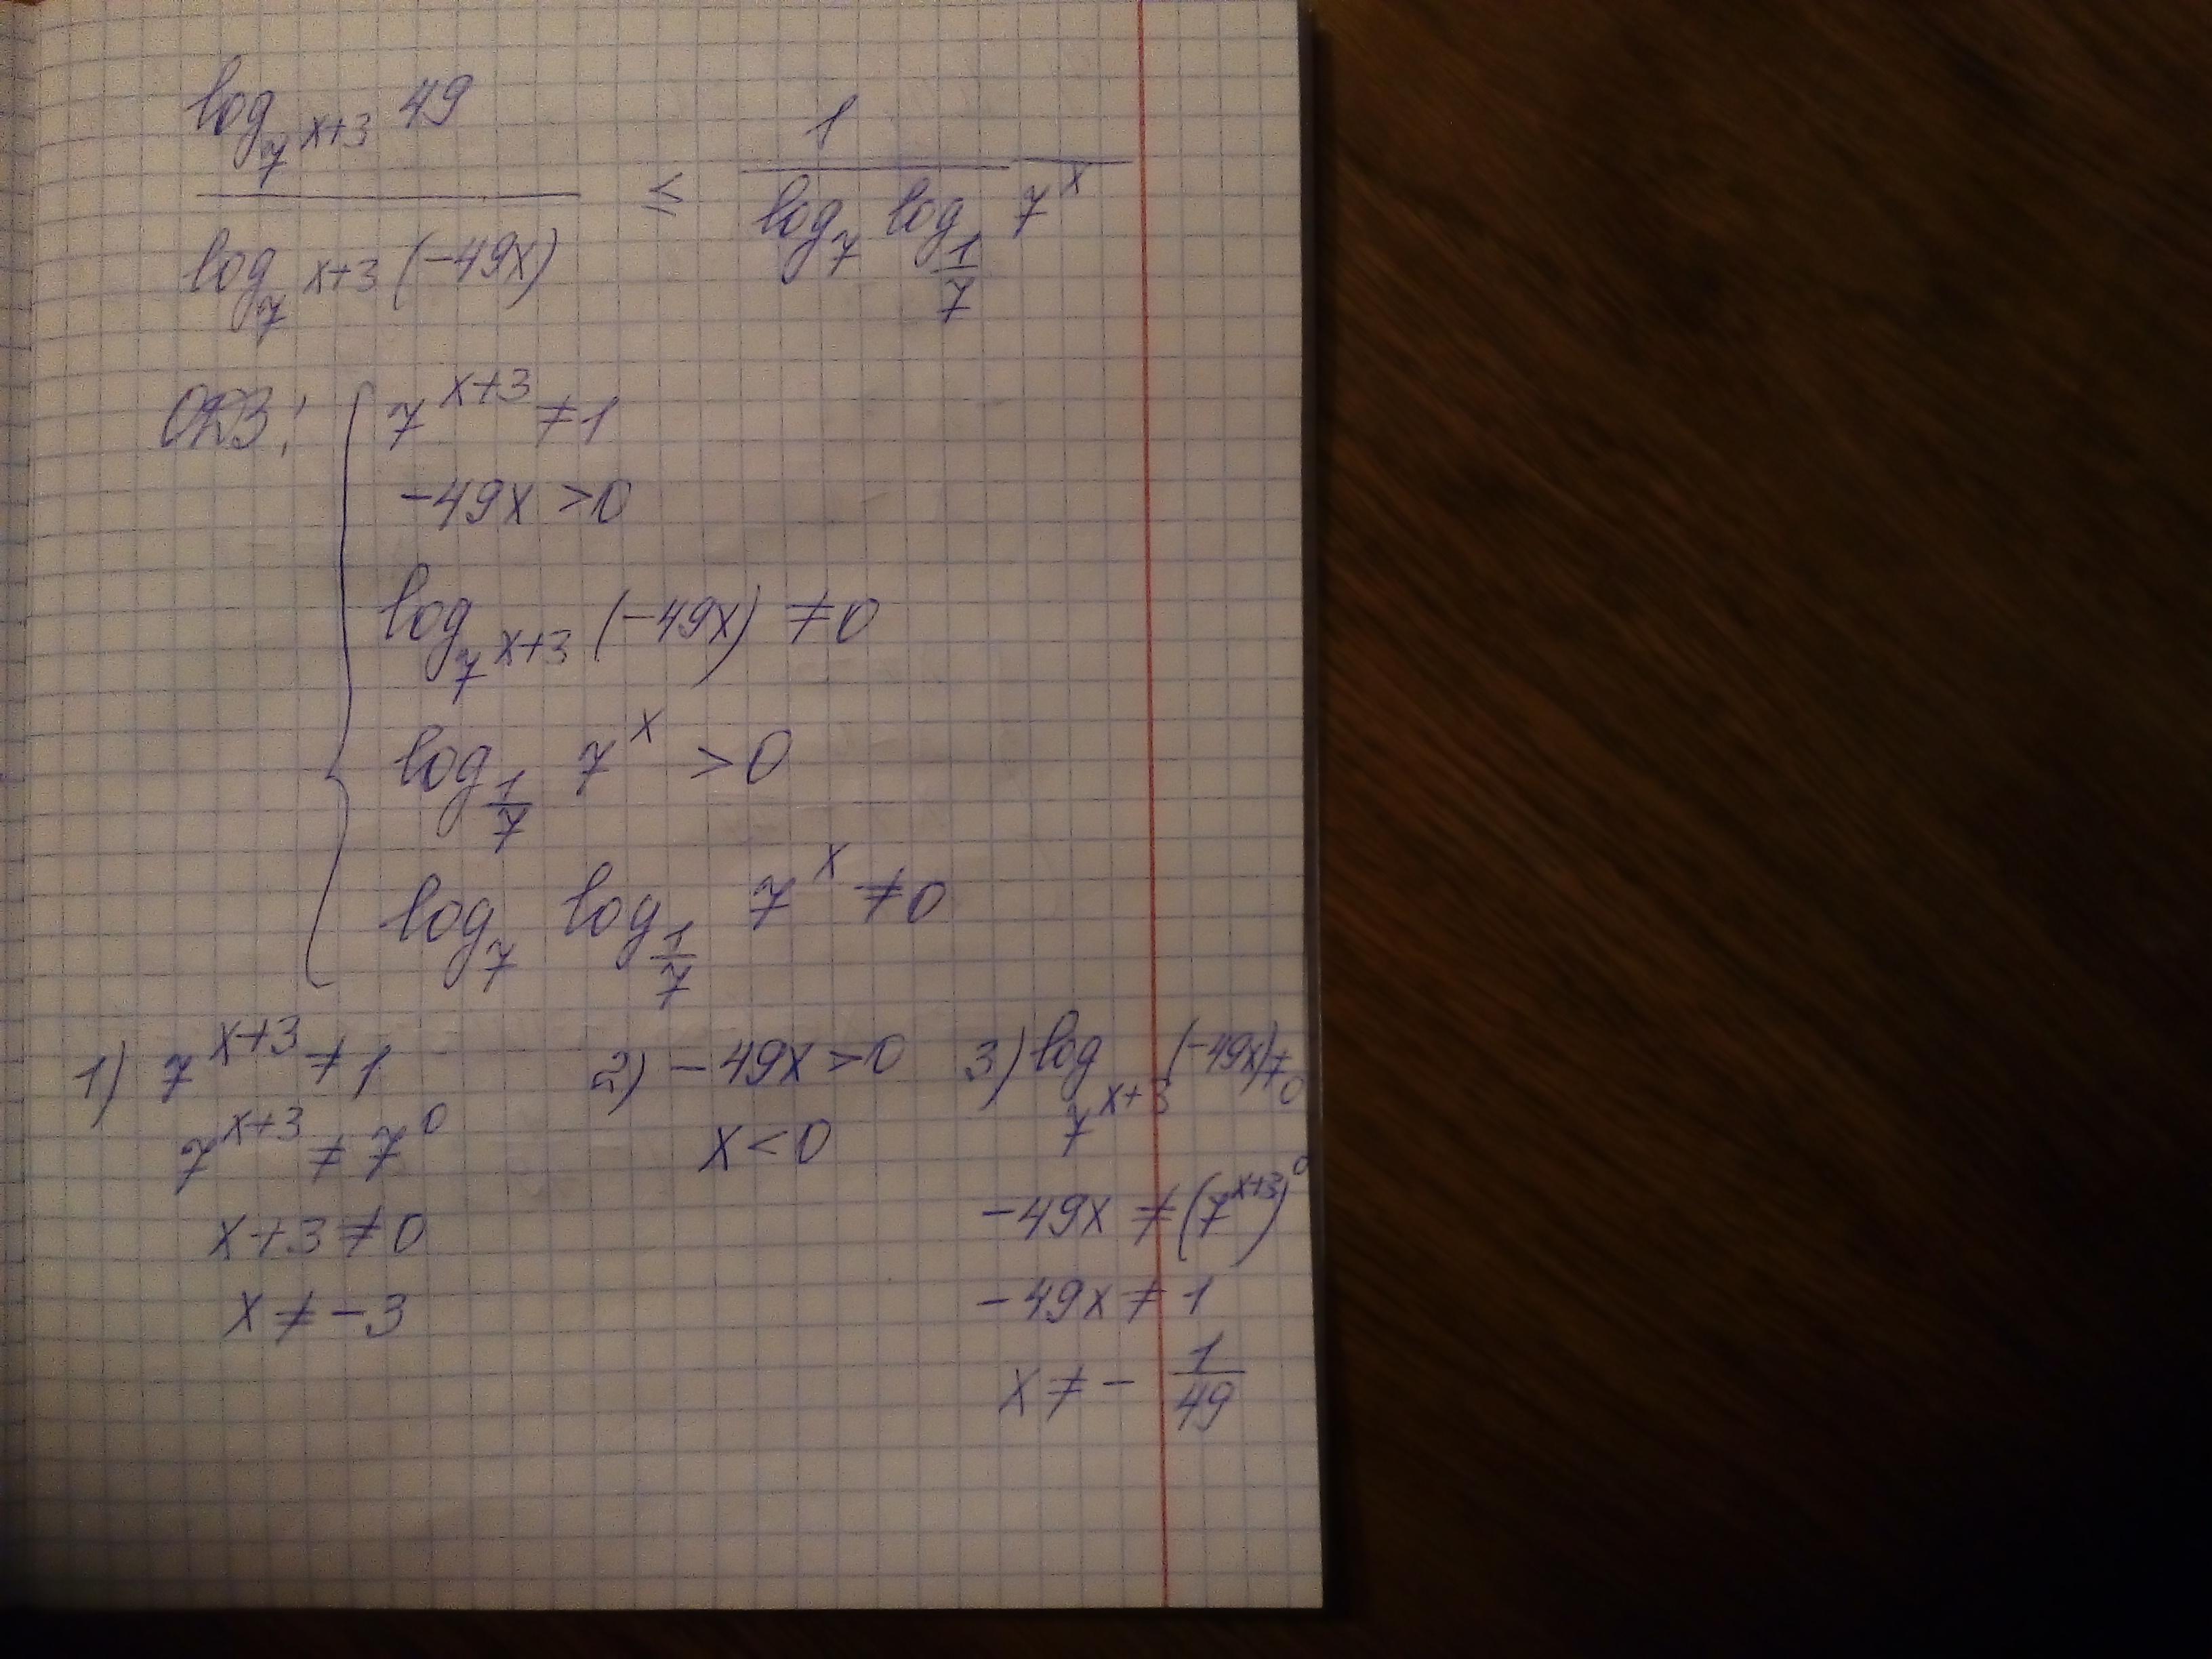 log_{7^{x+3}} 49 / log_{7^{x+3}} (-49x) ≤ 1 / log_7 log_{1/7} 7^x
ОДЗ: { 7^{x+3} ≠ 1
-49x > 0
log_{7^{x+3}} (-49x) ≠ 0
log_{1/7} 7^x > 0
log_7 log_{1/7} 7^x ≠ 0
1) 7^{x+3} ≠ 1 2) -49x > 0 3) log_{7^{x+3}} (-49x) ≠ 0
7^{x+3} ≠ 7^0 x < 0
-49x ≠ (7^{x+3})^0
x+3 ≠ 0
-49x ≠ 1
x ≠ -3
x ≠ - 1/49